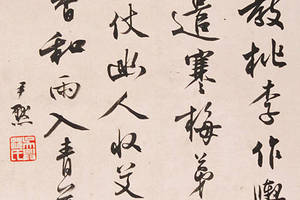 教桃李作輿
遣寒梅第
仗幽人收艾
香和雨入青
尹默